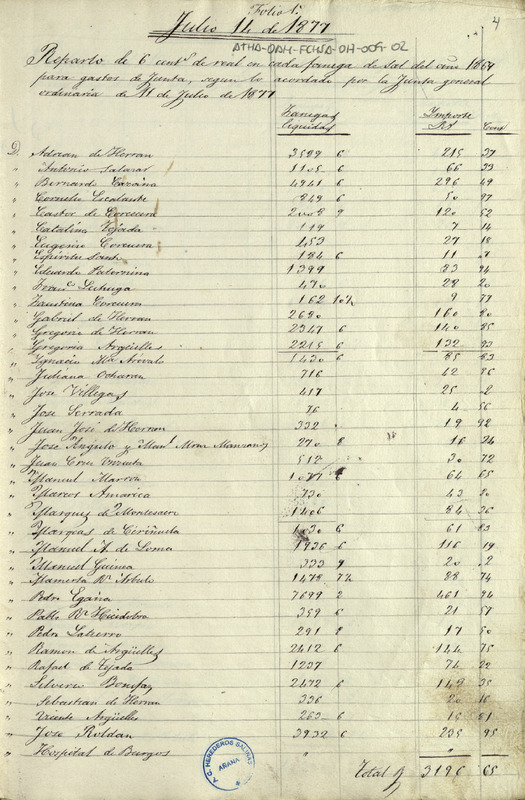 Folio 1º
4
Julio 14 de 1877
ATHA-DAH-FCHSA-DH-009-02
Reparto de 6 centˢ de real en cada fanega de sal del año 1867
para gastos de Junta, segun lo acordado por la Junta general
ordinaria de 11 de Julio de 1877
Fanegas liquidas Importe Rˢ Centˢ
D. Adrian de Herran 3599 6 215 37
" Antonio Salazar 1105 6 66 33
" Bernardo 4941 6 296 49
" Cornelio Escalante 849 6 50 97
" Castor de Corcuera 2008 9 120 52
" Catalina Tejada 119 7 14
" Eugenio Corcuera 453 27 18
" Espiritu Santo 184 6 11
" Eduardo Paternina 1399 83 94
" Franᶜᵒ Luzuga 470 28 20
" Faustina Corcuera 162 10½ 9 77
" Gabriel de Herran 2680 160 80
" Gregorio de Herran 2347 6 140 85
" Gregoria Argüelles 2215 6 132 93
" Ignacio Mª Arévalo 1430 6 85 83
" Juliana Ocharan 716 42 96
" Jose Villegas 417 25 2
" Jose Serrada 76 4 56
" Juan José de Herran 332 19 92
" Jose Angulo y Manˡ Mrnz Manzanos 270 8 16 24
" Juan Cruz 512 30 72
" Manuel Marron 1077 6 64 65
" Marcos Amarica 730 43 80
" Marquez de Montesacro 1406 84 36
" Marques de Ciriñuela 1030 6 61 83
" Manuel A. de Loma 1936 6 116 19
" Manuel Guinea 333 9 20 2
" Mamerta Rz Arbulo 1478 7½ 88 74
" Pedro Egaña 7699 2 461 94
" Pablo Rz 359 6 21 57
" Pedro Latierro 291 8 17 50
" Ramon de Argüelles 2412 6 144 75
" Rafael de Tejada 1237 74 22
" Silverio Bonifaz 2472 6 148 35
" Sebastian de Herran 336 20 16
" Vicente Argüelles 263 6 15 81
" Jose Roldan 3932 6 235 95
" Hospital de Burgos " "
Total 3196 65
T.C. HEREDEROS SALINAS
AÑANA